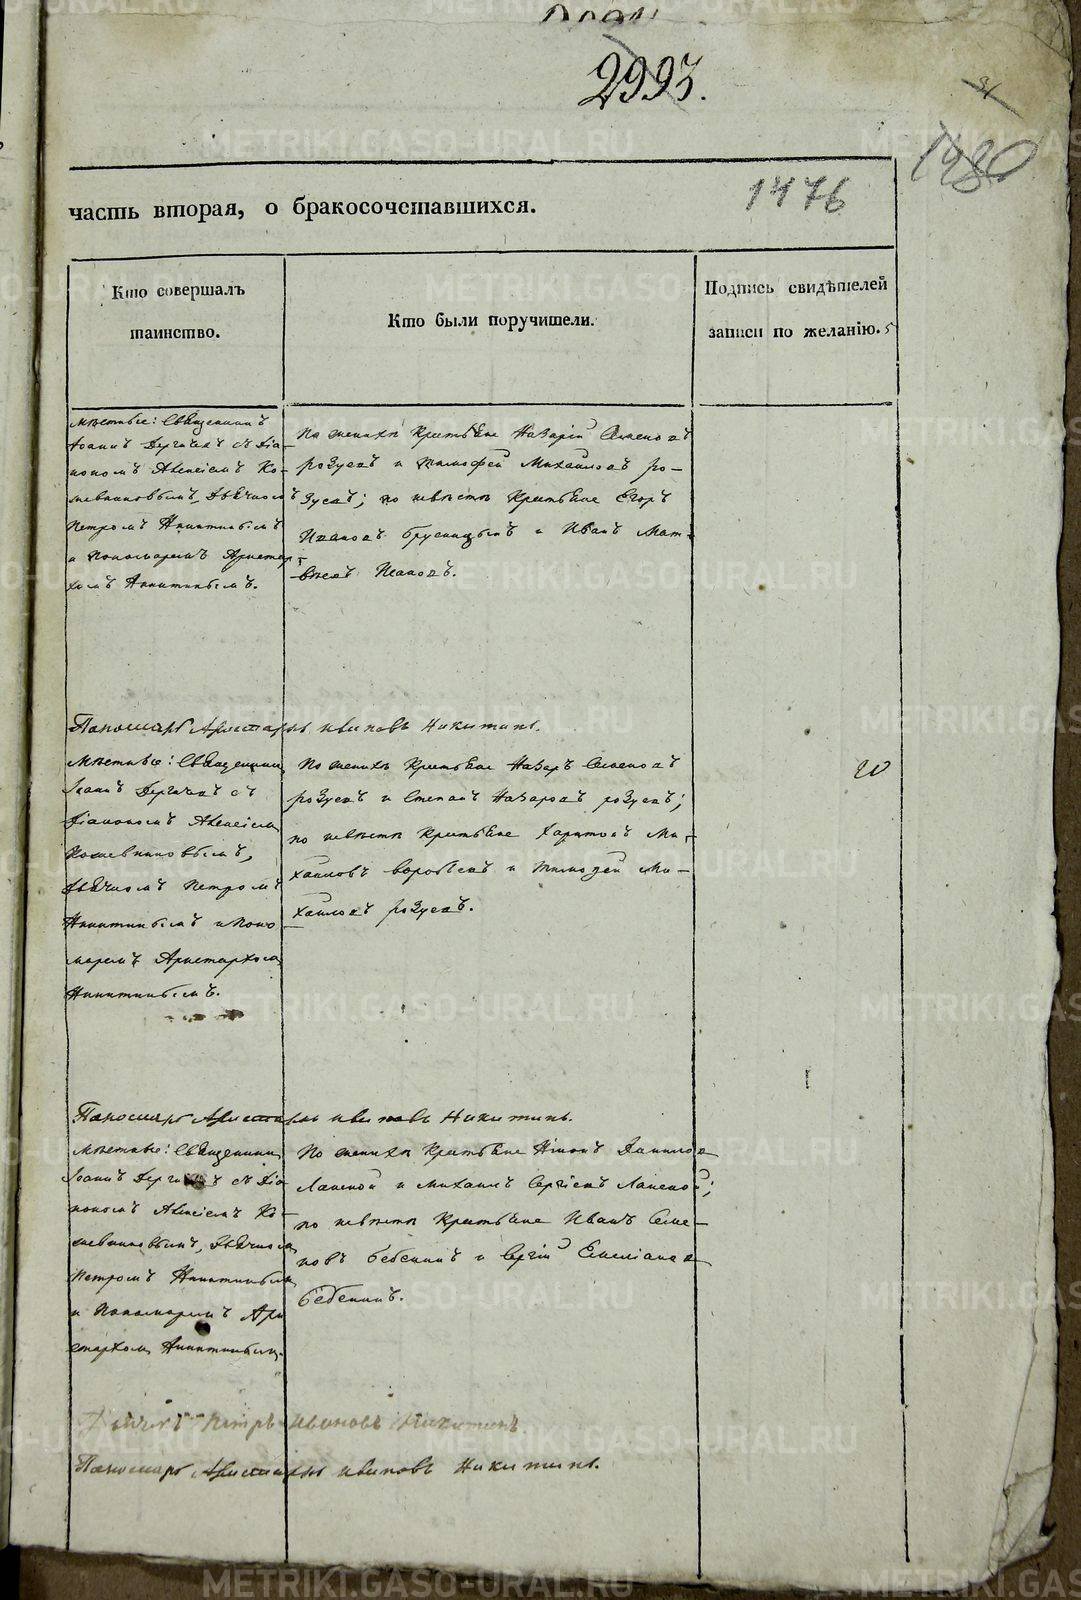 2993.
31
1480
1476
часть вторая, о бракосочетавшихся.
Кто совершалъ
таинство.
Кто были поручители.
Подпись свидѣтелей
записи по желанію.
Мѣстные: Священникъ
Іоаннъ съ Діа-
кономъ Алексіемъ Ко-
жевниковымъ, Дьячкомъ
Петромъ Никитинымъ
и Пономаремъ Аристар-
хомъ Никитинымъ.
По женихѣ Крестьяне Назарій Семеновъ
Розуевъ и Тимофей Михайловъ Ро-
зуевъ; по невѣстѣ Крестьяне Егоръ
Ивановъ Брусницынъ и Иванъ Мат-
вѣевъ
Пономарь Аристархъ Ивановъ Никитинъ.
Мѣстные: Священникъ
Іоаннъ съ
Діакономъ Алексіемъ
Кожевниковымъ,
Дьячкомъ Петромъ
Никитинымъ и Поно
маремъ Аристархомъ
Никитинымъ.
По женихѣ Крестьяне Назаръ Семеновъ
Розуевъ и Степанъ Назаровъ Розуевъ;
по невѣстѣ Крестьяне Харитонъ Ми-
хайловъ Воробьевъ и Тимофей Ми-
хайловъ Розуевъ.
20
Пономарь Аристархъ Ивановъ Никитинъ.
Мѣстные: Священникъ
Іоаннъ съ Діа
кономъ Алексіемъ Ко-
жевниковымъ, Дьячкомъ
Петромъ Никитинымъ
и Пономаремъ Ари
стархомъ Никитинымъ.
По женихѣ Крестьяне Данилов
и Михаилъ Сергіевъ
по невѣстѣ Крестьяне Иванъ Семе-
новъ Бебенинъ и Сергій Емеліанов
Бебенинъ.
Дьячекъ Петръ Ивановъ Никитинъ
Пономарь Аристархъ Ивановъ Никитинъ.
METRIKI.GASO-URAL.RU